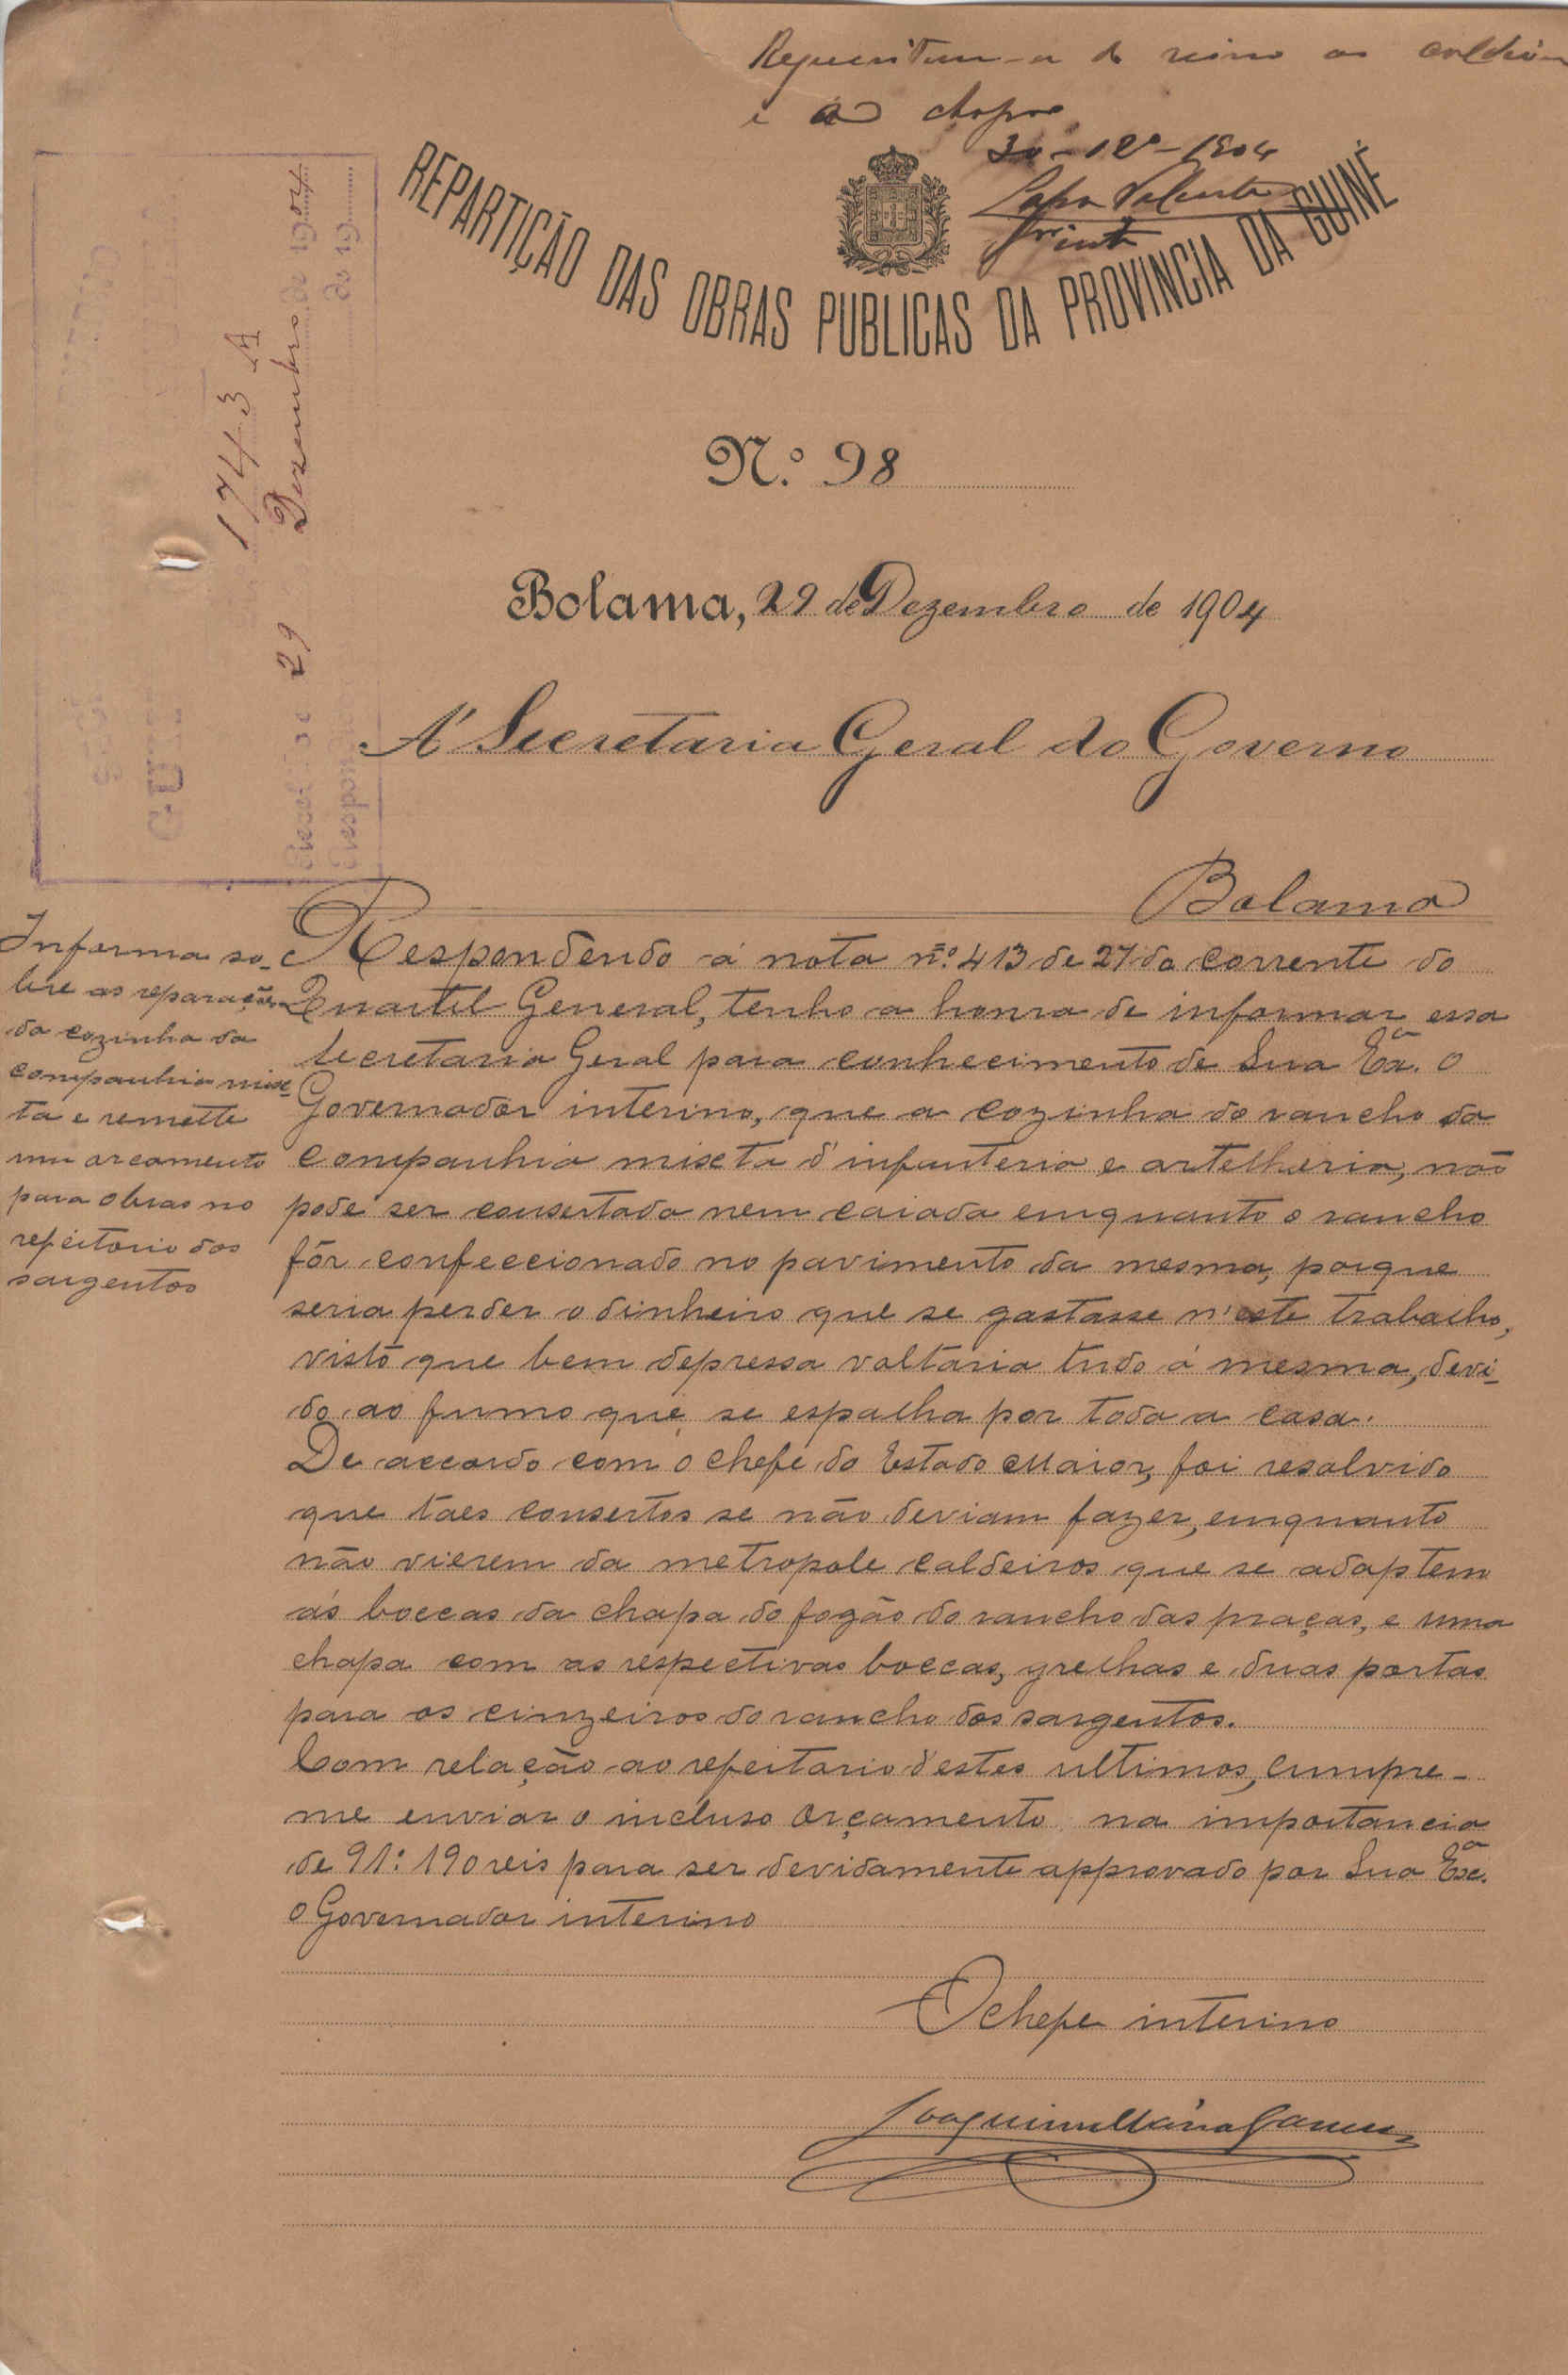 e as chapas
30-12º-1904
REPARTIÇÃO DAS OBRAS PUBLICAS DA PROVINCIA DA GUINÉ
1743 A
29 Dezembro de 1904
de 19
N.º 98
Bolama, 29 de Dezembro de 1904
Á Secretaria Geral do Governo
Bolama
Informa so-
bre as reparações
da cozinha da
companhia mixt-
ta e remette
um orcamento
para obras no
refeitorio dos
sargentos
Respondendo á nota n.º 413 de 27 do corrente do
Quartel General, tenho a honra de informar essa
Secretaria Geral para conhecimento de Sua Exª. O
Governador interino, que a cozinha do rancho da
companhia mixta d'infanteria e artelheria, não
pode ser consertada nem caiada emquanto o rancho
fôr confeccionado no pavimento da mesma, porque
seria perder o dinheiro que se gastasse n'este trabalho,
visto que bem depressa voltaria tudo á mesma, devi-
do ao fumo que se espalha por toda a casa.
De accordo com o chefe do Estado Maior, foi resolvido
que taes consertos se não deviam fazer, emquanto
não vierem da metropole caldeiros que se adaptem
ás boccas da chapa do fogão do rancho das praças, e uma
chapa com as respectivas boccas, grelhas e duas portas
para os cinzeiros do rancho dos sargentos.
Com relação ao refeitorio d'estes ultimos, cumpre-
me enviar o incluso orçamento na importancia
de 91:190 reis para ser devidamente approvado por Sua Exª.
o Governador interino
O chefe interino
Joaquim Maria